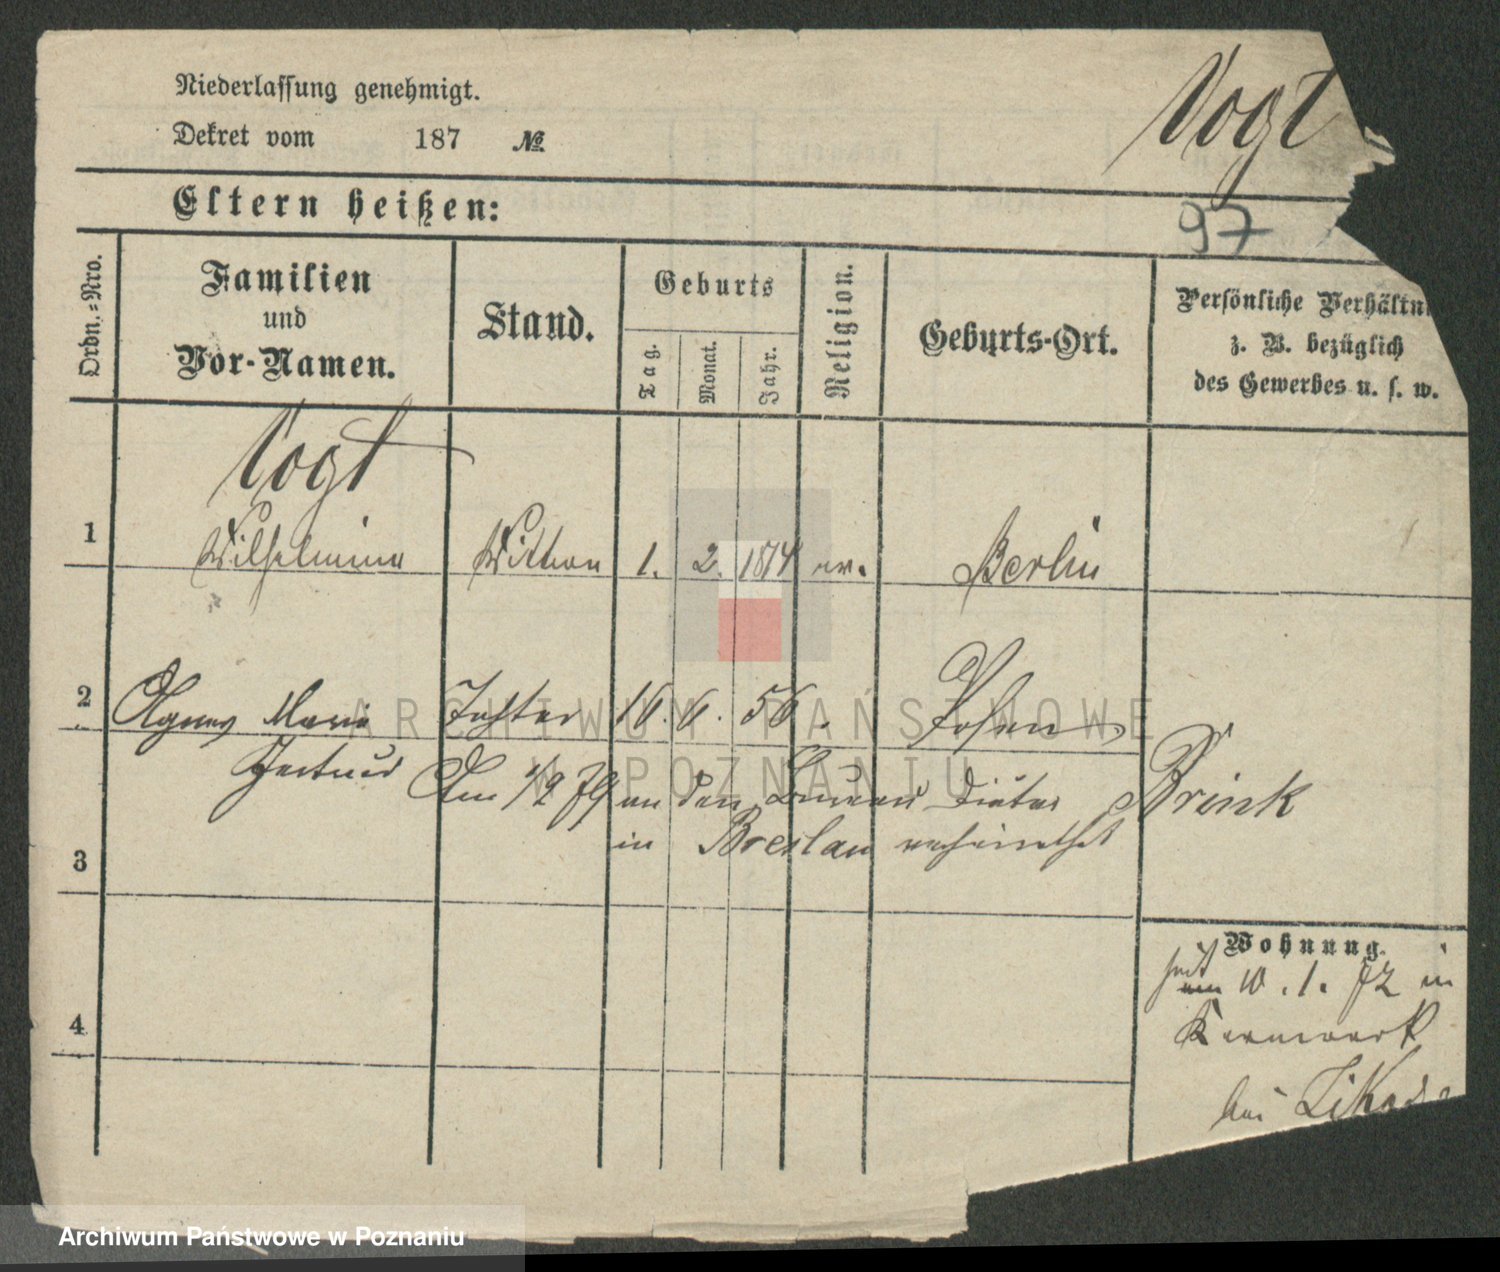 Niederlassung genehmigt.
Vogt
Dekret vom 187 №
Eltern heißen:
97
Ordn.-Nro.
Familien und Vor-Namen.
Stand.
Geburts
Tag.
Monat.
Jahr.
Religion.
Geburts-Ort.
Persönliche Verhältn
z. B. bezüglich
des Gewerbes u. s. w.
Vogt
1 Wilhelmine Wittwe 1. 2. 1814 ev. Berlin
2 Agnes Marie Tochter 16. 6. 56. Posen
Gertrud Am 1/2 79 an den Bureau Diätar Brink
in Breslau verheirathet
3
Wohnung.
seit 10. 1. 72 in
4
Kernwerk
bei
ARCHIWUM PAŃSTWOWE
W POZNANIU
Archiwum Państwowe w Poznaniu